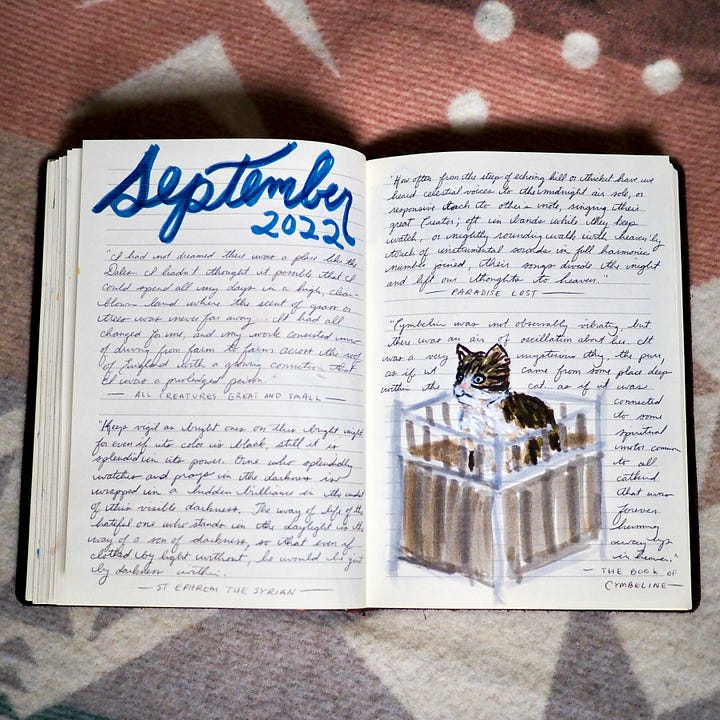 September
2022
"I had not dreamed there was a place like the
Dales. I hadn't thought it possible that I
could spend all my days in a high, clean-
blown land where the scent of grass or
trees was never far away. It had all
changed for me, and my work consisted now
of driving from farm to farm across the roof
of England with a growing conviction that
I was a privileged person."
— ALL CREATURES GREAT AND SMALL —
"Keep vigil as bright ones on this bright night
for even if its color is black, still it is
splendid in its power. One who splendidly
watches and prays in the darkness is
wrapped in a hidden brilliance in the midst
of this visible darkness. The way of life of the
hateful one who stands in the daylight is the
way of a son of darkness, so that even if
clothed by light without, he would be girt
by darkness within.
— ST EPHREM THE SYRIAN —
"How often from the steep of echoing hill or thicket have we
heard celestial voices to the midnight air sole, or
responsive each to other's note, singing their
great Creator; oft in bands while they keep
watch, or nightly rounding walk with heavenly
touch of instrumental sounds in full harmonic
number joined, their songs divide the night
and lift our thoughts to heaven."
— PARADISE LOST —
"Cymbeline was not observably vibrating but
there was an air of oscillation about her. It
was a very mysterious thing, the purr,
as if it came from some place deep
within the cat.. as if it was
connected
to some
spiritual
motor common
to all
cathood
that was
forever
humming
away up
in heaven."
— THE BOOK OF
CYMBELINE —